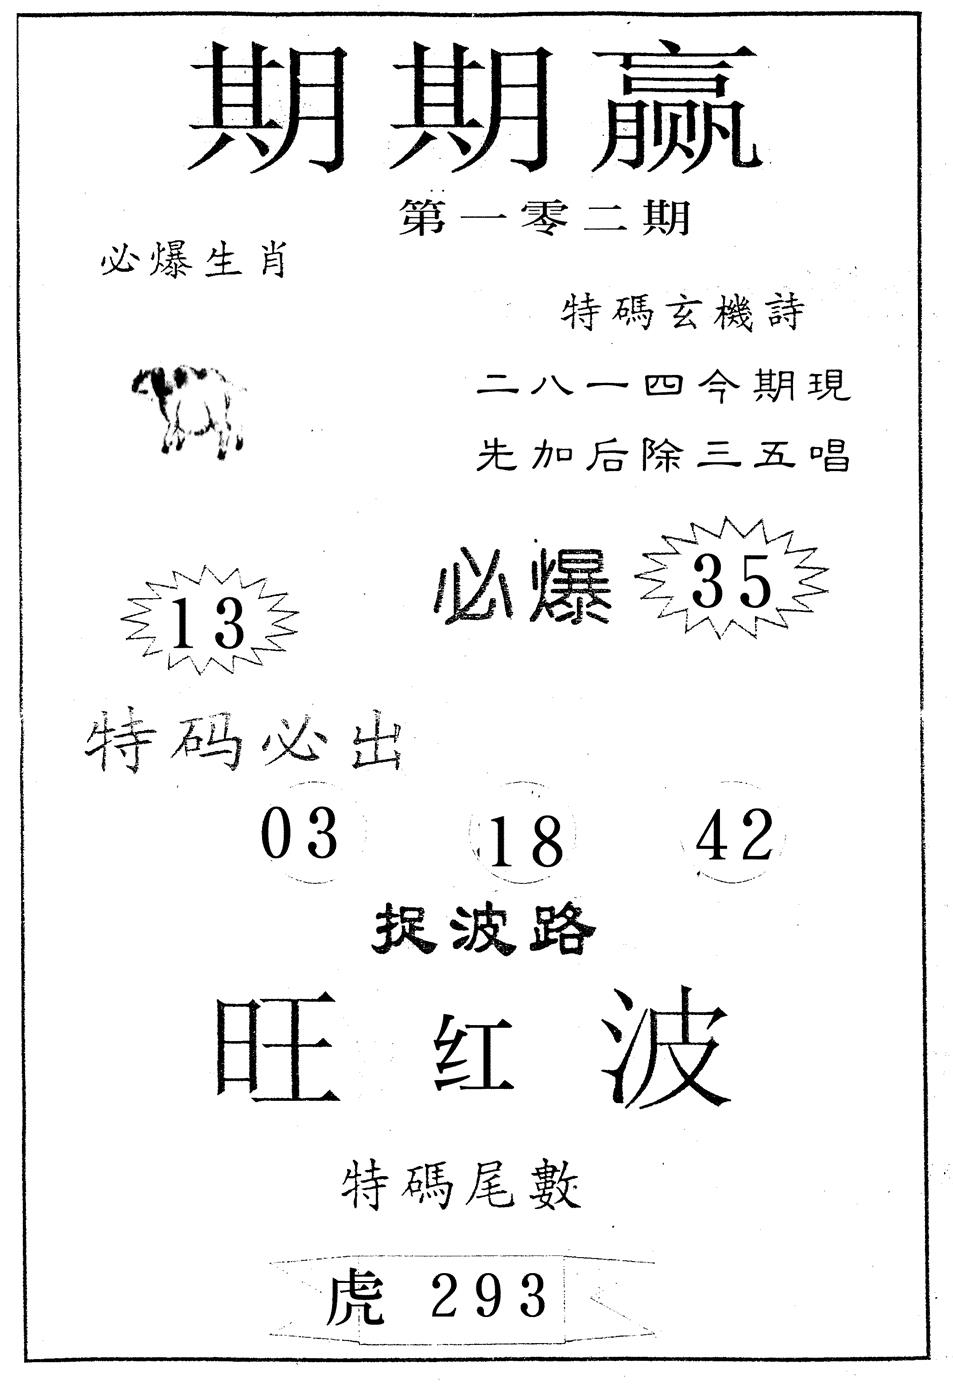 期期赢
第一零二期
必爆生肖
特碼玄機詩
二八一四今期現
先加后除三五唱
必爆 35
13
特码必出
03 18 42
捉波路
旺红波
特碼尾數
虎 293